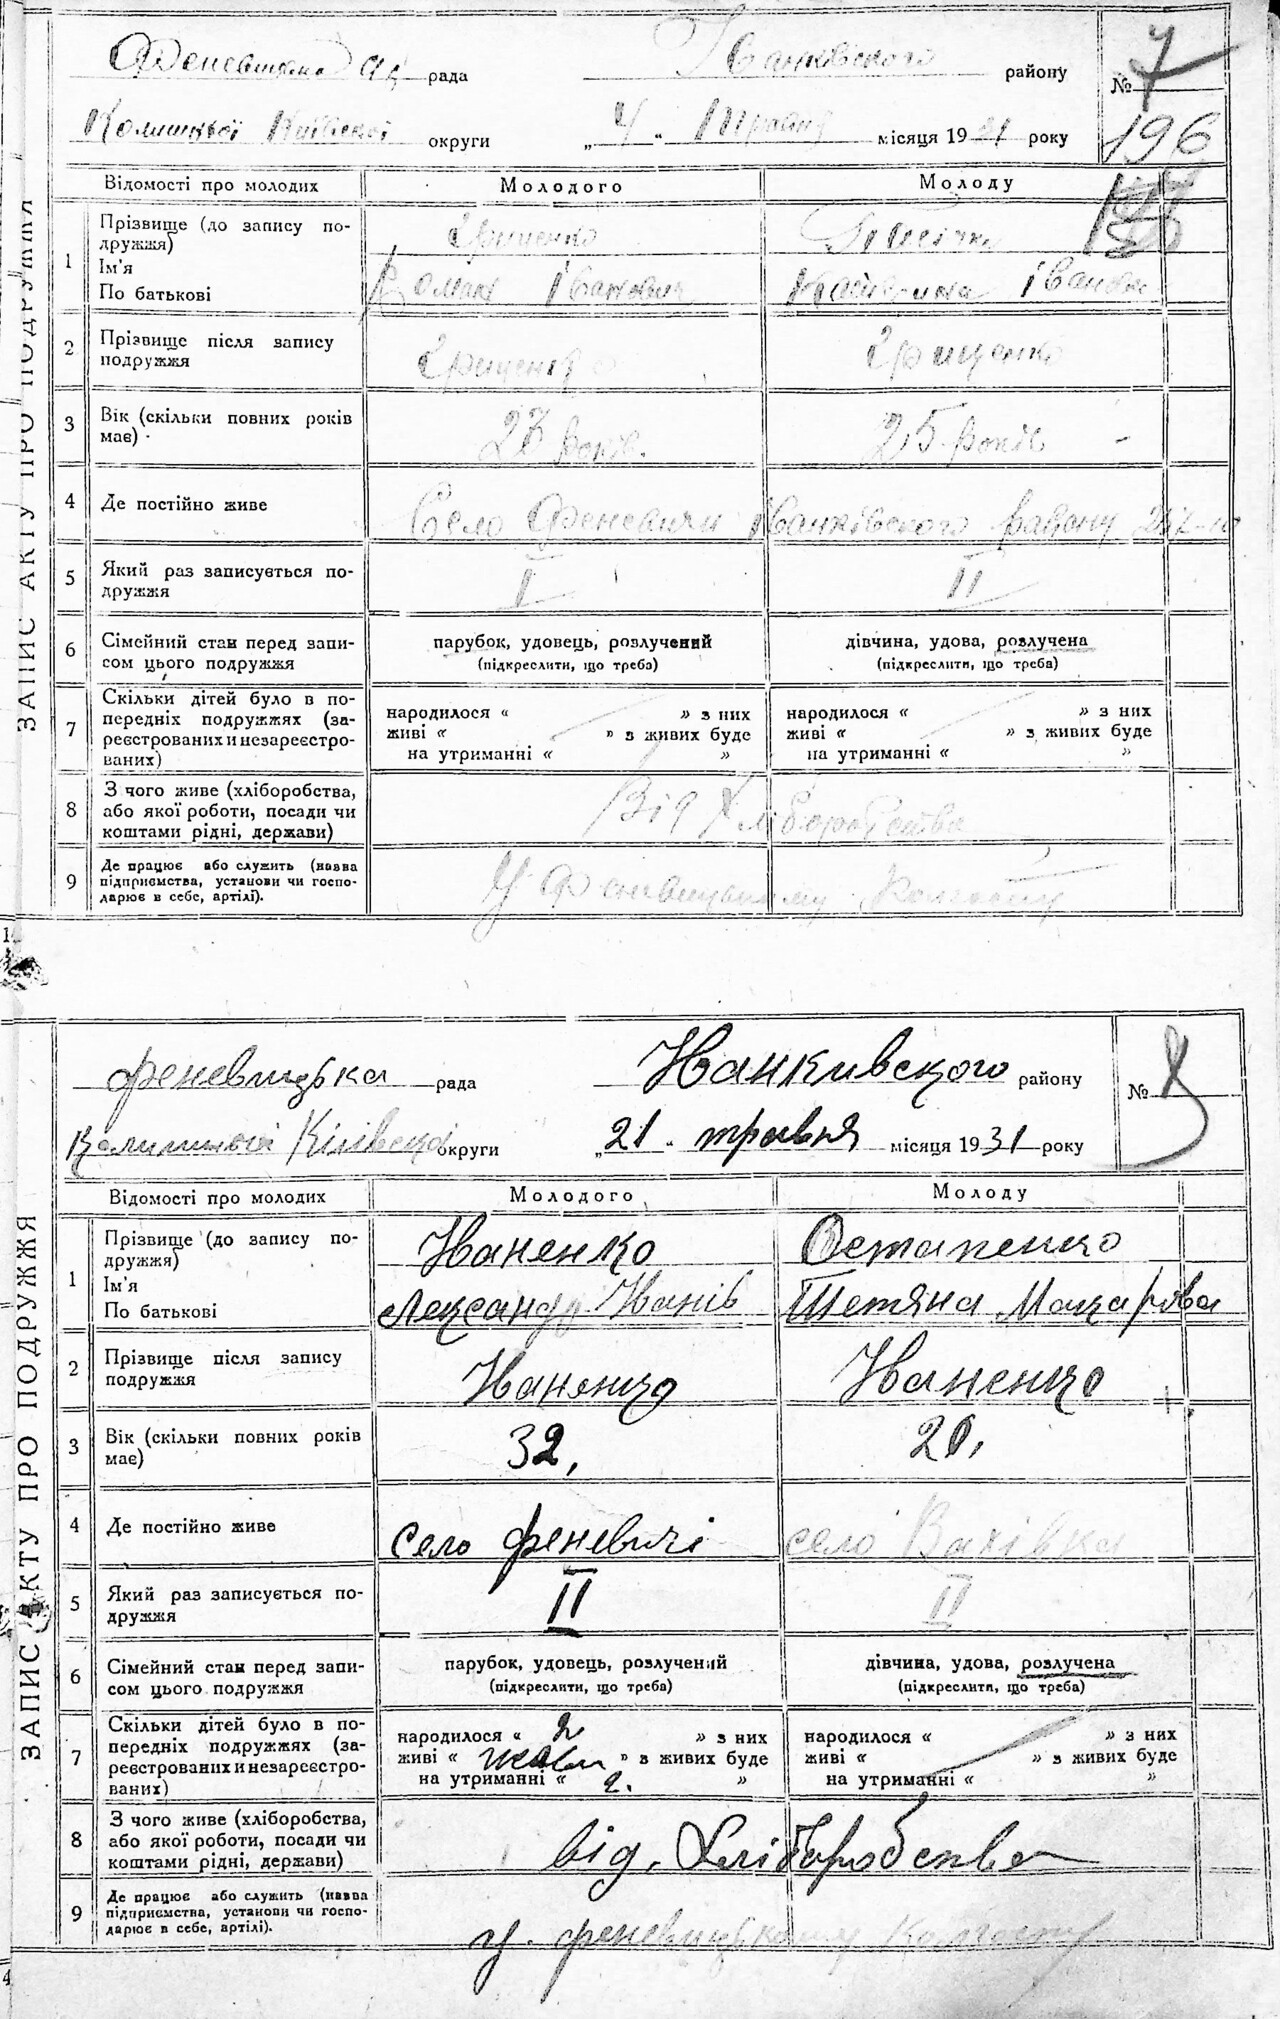 рада Іванківского району № 7
Колишньої Київскої округи „4" Травня місяця 1931 року 196
ЗАПИС АКТУ ПРО ПОДРУЖЖЯ
Відомості про молодих Молодого Молоду
1 Прізвище (до запису по-
дружжя) Грищенко
Ім'я
По батькові Роман Іванович Катерина Іванов
2 Прізвище після запису
подружжя Грищенко Грищенко
3 Вік (скільки повних років
має) 27 років. 25 років -
4 Де постійно живе Село Феневичи Іванківского району
5 Який раз записується по-
дружжя I II
6 Сімейний стан перед запи-
сом цього подружжя
парубок, удовець, розлучений
(підкреслити, що треба)
дівчина, удова, розлучена
(підкреслити, що треба)
7 Скільки дітей було в по-
передніх подружжях (за-
реєстрованих и незареєстро-
ваних)
народилося « » з них
живі « » з живих буде
на утриманні « »
народилося « » з них
живі « » з живих буде
на утриманні « »
8 З чого живе (хліборобства,
або якої роботи, посади чи
коштами рідні, держави) Від Хліборобства
9 Де працює або служить (назва
підприємства, установи чи госпо-
дарює в себе, артілі). У Феневицькому Колгоспу
феневицька рада Иванкивского району № 8
Колишньої Київскої округи „21" травня місяця 1931 року
ЗАПИС АКТУ ПРО ПОДРУЖЖЯ
Відомості про молодих Молодого Молоду
1 Прізвище (до запису по-
дружжя) Иваненко Остапенко
Ім'я
По батькові Лександр Иванів Тетяна Макарова
2 Прізвище після запису
подружжя Иваненко Иваненко
3 Вік (скільки повних років
має) 32, 20,
4 Де постійно живе Село феневичі село Вахівка
5 Який раз записується по-
дружжя II II
6 Сімейний стан перед запи-
сом цього подружжя
парубок, удовець, розлучений
(підкреслити, що треба)
дівчина, удова, розлучена
(підкреслити, що треба)
7 Скільки дітей було в по-
передніх подружжях (за-
реєстрованих и незареєстро-
ваних)
народилося « 2 » з них
живі « живи » з живих буде
на утриманні « 2. »
народилося « » з них
живі « » з живих буде
на утриманні « »
8 З чого живе (хліборобства,
або якої роботи, посади чи
коштами рідні, держави) від. Хліборобства
9 Де працює або служить (назва
підприємства, установи чи госпо-
дарює в себе, артілі). у. феневицькому Колгоспу